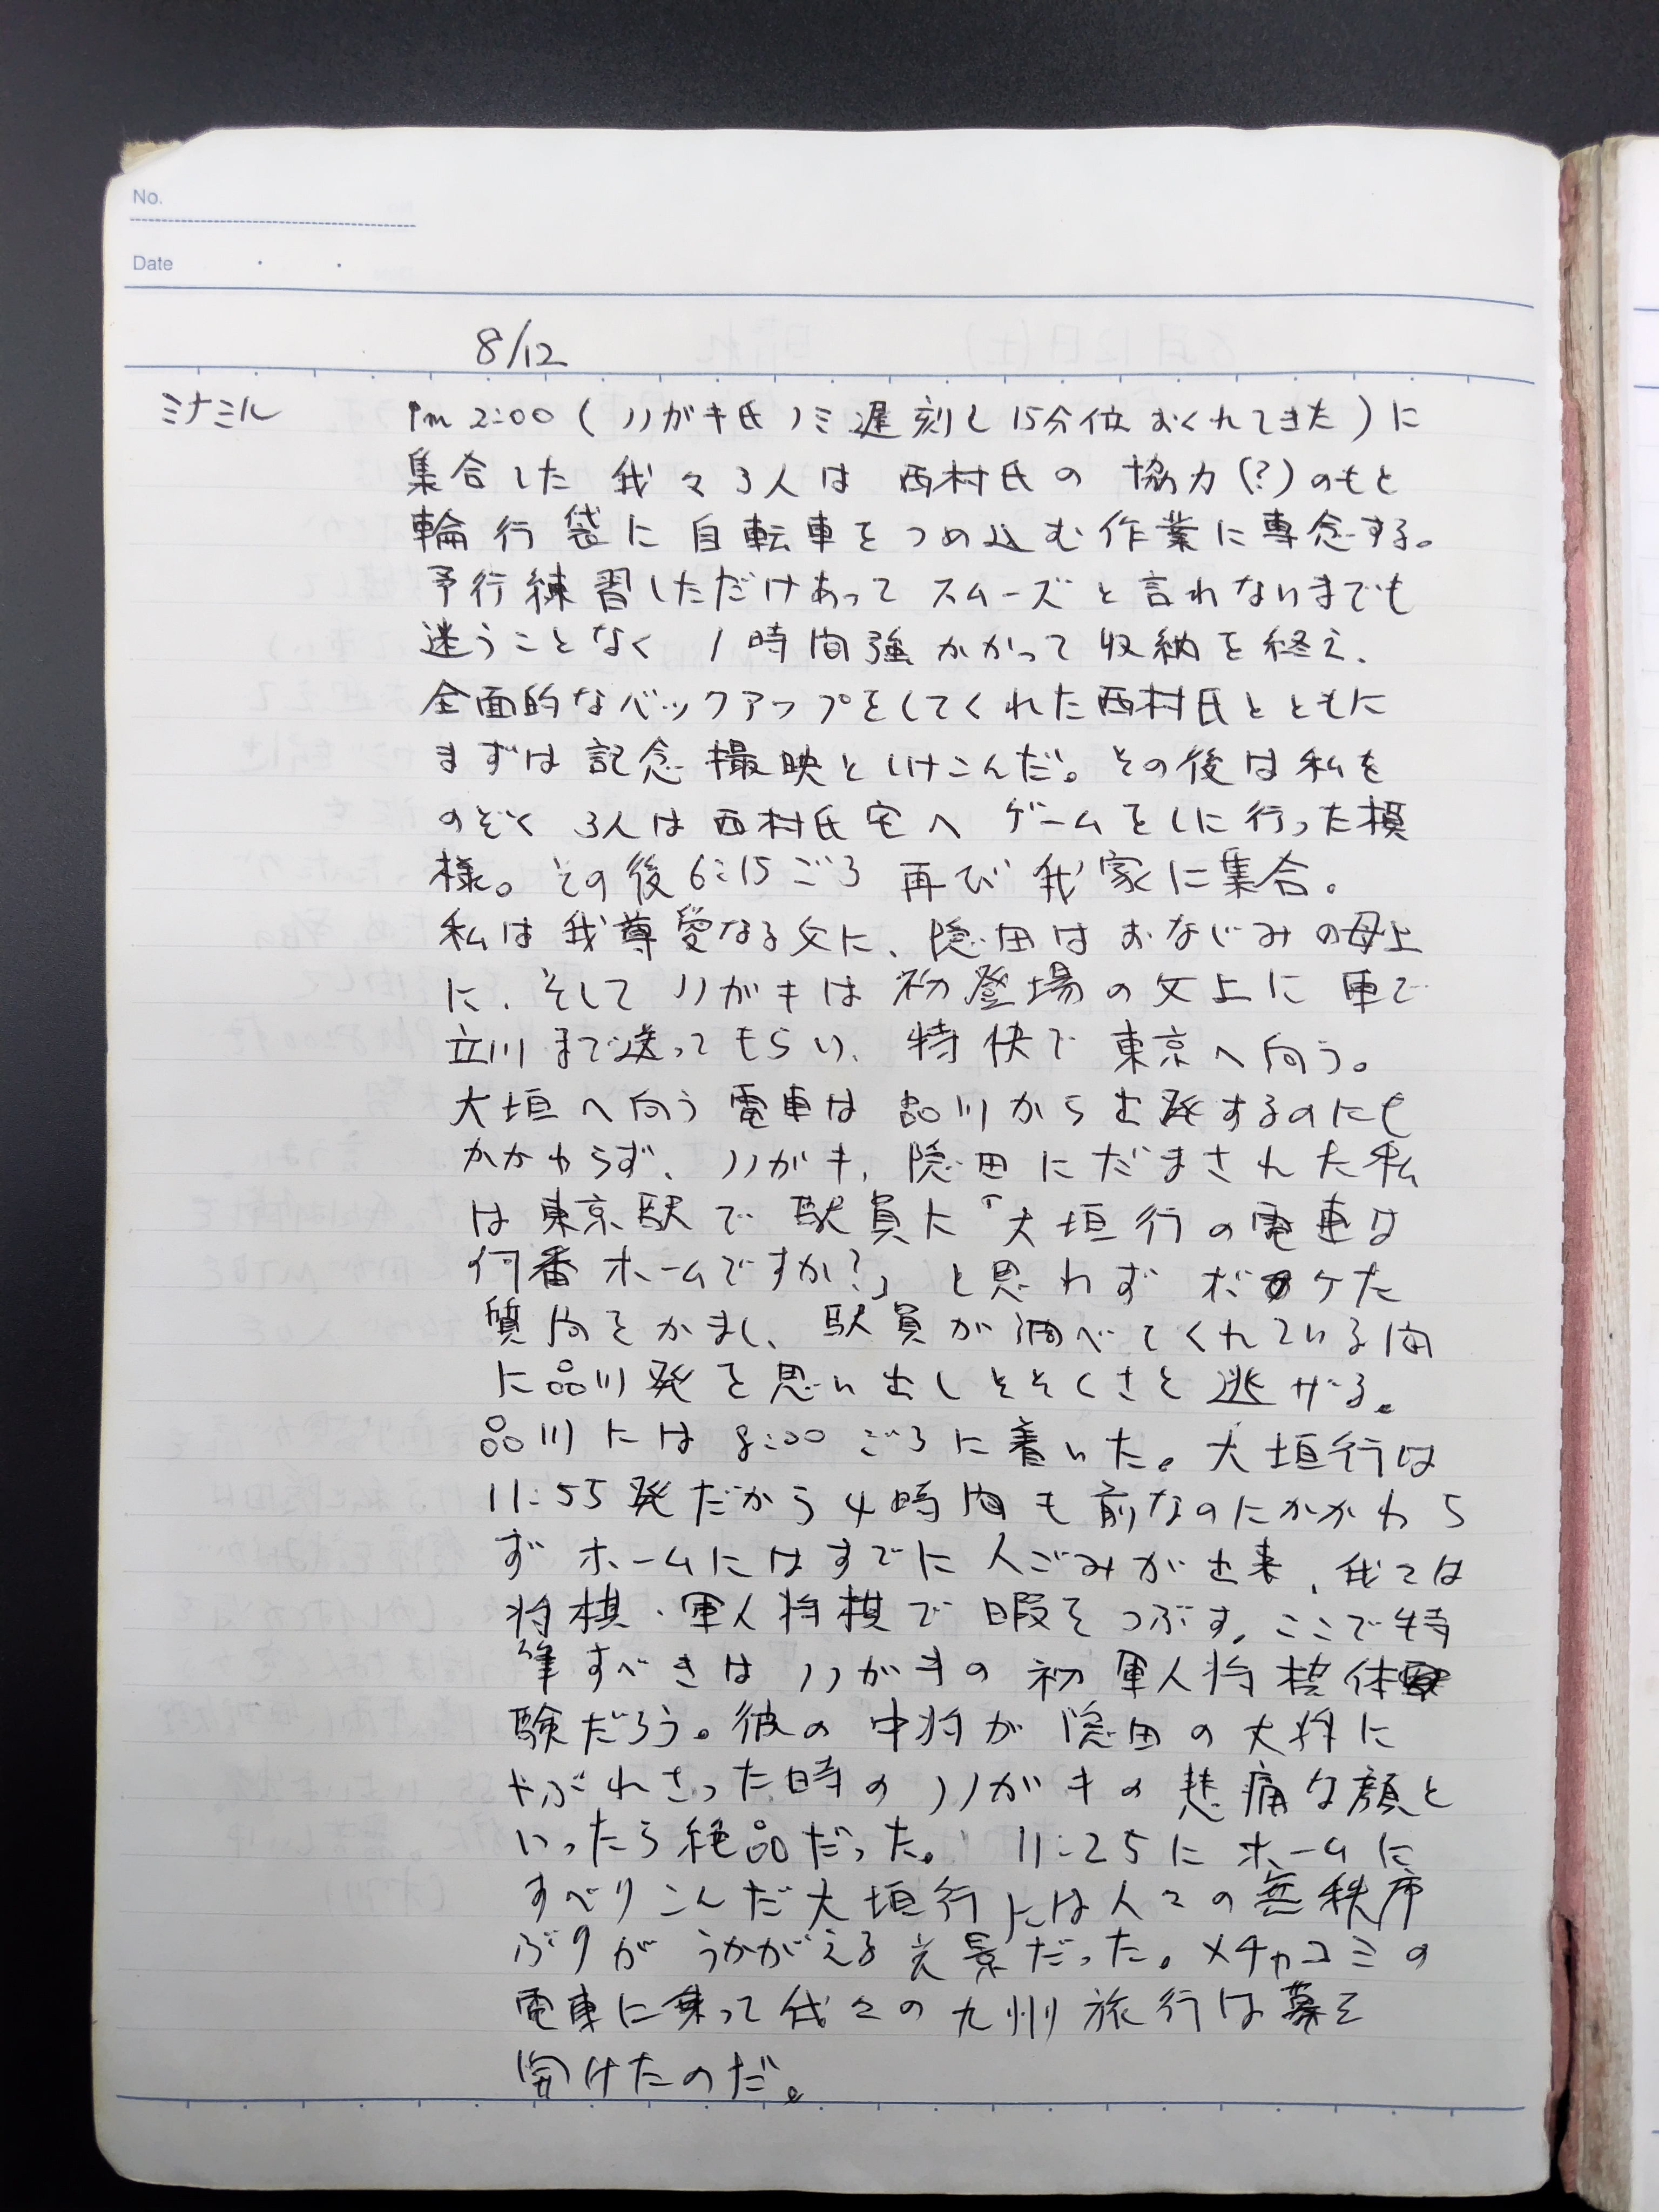 No.
Date
8/12
ミナミル
Pm 2:00 (ハガキ氏ノミ遅刻し15分位おくれてきた)に
集合した我々3人は西村氏の協力(?)のもと
輪行袋に自転車をつめ込む作業に専念する。
予行練習しただけあってスムーズと言れないまでも
迷うことなく1時間強かかって収納を終え、
全面的なバックアップをしてくれた西村氏とともに
まずは記念撮映といけこんだ。その後は私を
のぞく3人は西村氏宅へゲームをしに行った模
様。その後6:15ごろ再び我家に集合。
私は我尊愛なる父に、隠田はおなじみの母上
に、そしてハガキは初登場の父上に車で
立川まで送ってもらい、特快で東京へ向う。
大垣へ向う電車は品川から出発するのにも
かかわらず、ハガキ、隠田にだまされた私
は東京駅で駅員に「大垣行の電車は
何番ホームですか?」と思わずボケた
質問をかまし、駅員が調べてくれている間
に品川発を思い出しそそくさと逃げる。
品川には8:00ごろに着いた。大垣行は
11:55発だから4時間も前なのにかかわら
ずホームにはすでに人ごみが出来、我々は
将棋・軍人将棋で暇をつぶす。ここで特
筆すべきはハガキの初軍人将棋体
験だろう。彼の中将が隠田の大将に
やぶれさった時のハガキの悲痛な顔と
いったら絶品だった。11:25にホームに
すべりこんだ大垣行には人々の無秩序
ぶりがうかがえる光景だった。メチャコミの
電車に乗って我々の九州旅行は幕を
開けたのだ。